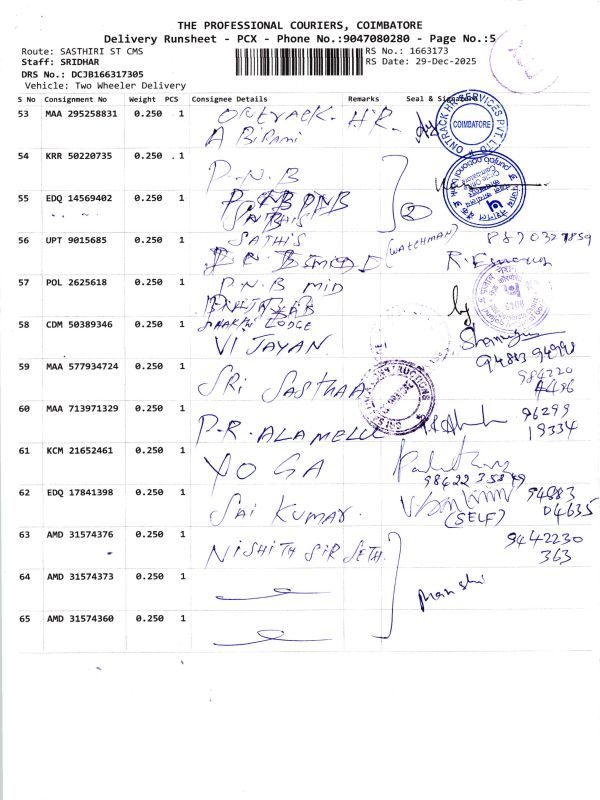 THE PROFESSIONAL COURIERS, COIMBATORE
Delivery Runsheet - PCX - Phone No.:9047080280 - Page No.:5
Route: SASTHIRI ST CMS
RS No.: 1663173
Staff: SRIDHAR
RS Date: 29-Dec-2025
DRS No.: DCJB166317305
Vehicle: Two Wheeler Delivery
S No Consignment No Weight PCS Consignee Details Remarks Seal & Signature
53 MAA 295258831 0.250 1 ONTRACK. H.R.
A BiRAMi
ONTRACK HR SERVICES PVT. LTD.
COIMBATORE
54 KRR 50220735 0.250 1 P.N.B
punjab national bank
55 EDQ 14569402 0.250 1 PNB PNB
SATHIS
2
56 UPT 9015685 0.250 1 SATHIS
(WATCHMAN)
57 POL 2625618 0.250 1 P.N.B MID
58 CDM 50389346 0.250 1 LODGE
VIJAYAN
59 MAA 577934724 0.250 1 SRI SASTHAA
984220
60 MAA 713971329 0.250 1 P.R. ALAMELU
96299
19334
61 KCM 21652461 0.250 1 YOGA
98422 35849
62 EDQ 17841398 0.250 1 SAI KUMAR.
(SELF)
94883
04635
63 AMD 31574376 0.250 1 NISHITH SIR SETH.
9442230
363
64 AMD 31574373 0.250 1
Manshi
65 AMD 31574360 0.250 1